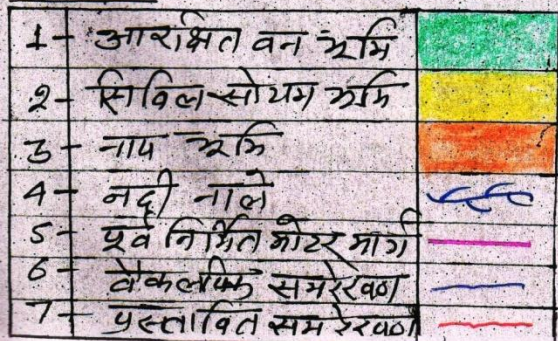 1- आरक्षित वन भूमि
2- सिविल सोयम भूमि
3- नाप भूमि
4- नदी नाले
5- पूर्व निर्मित मोटर मार्ग
6- वैकल्पिक समरेखण
7- प्रस्तावित समरेखण